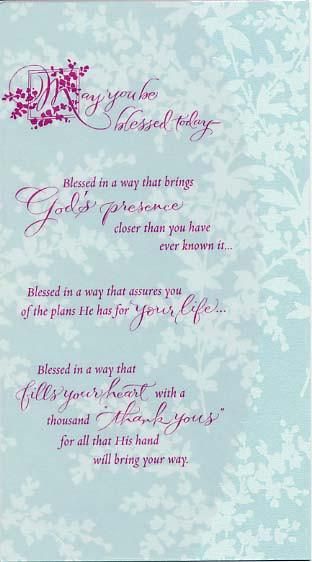 May you be
blessed today
Blessed in a way that brings
God's presence
closer than you have
ever known it...
Blessed in a way that assures you
of the plans He has for your life...
Blessed in a way that
fills your heart with a
thousand "thank yous"
for all that His hand
will bring your way.